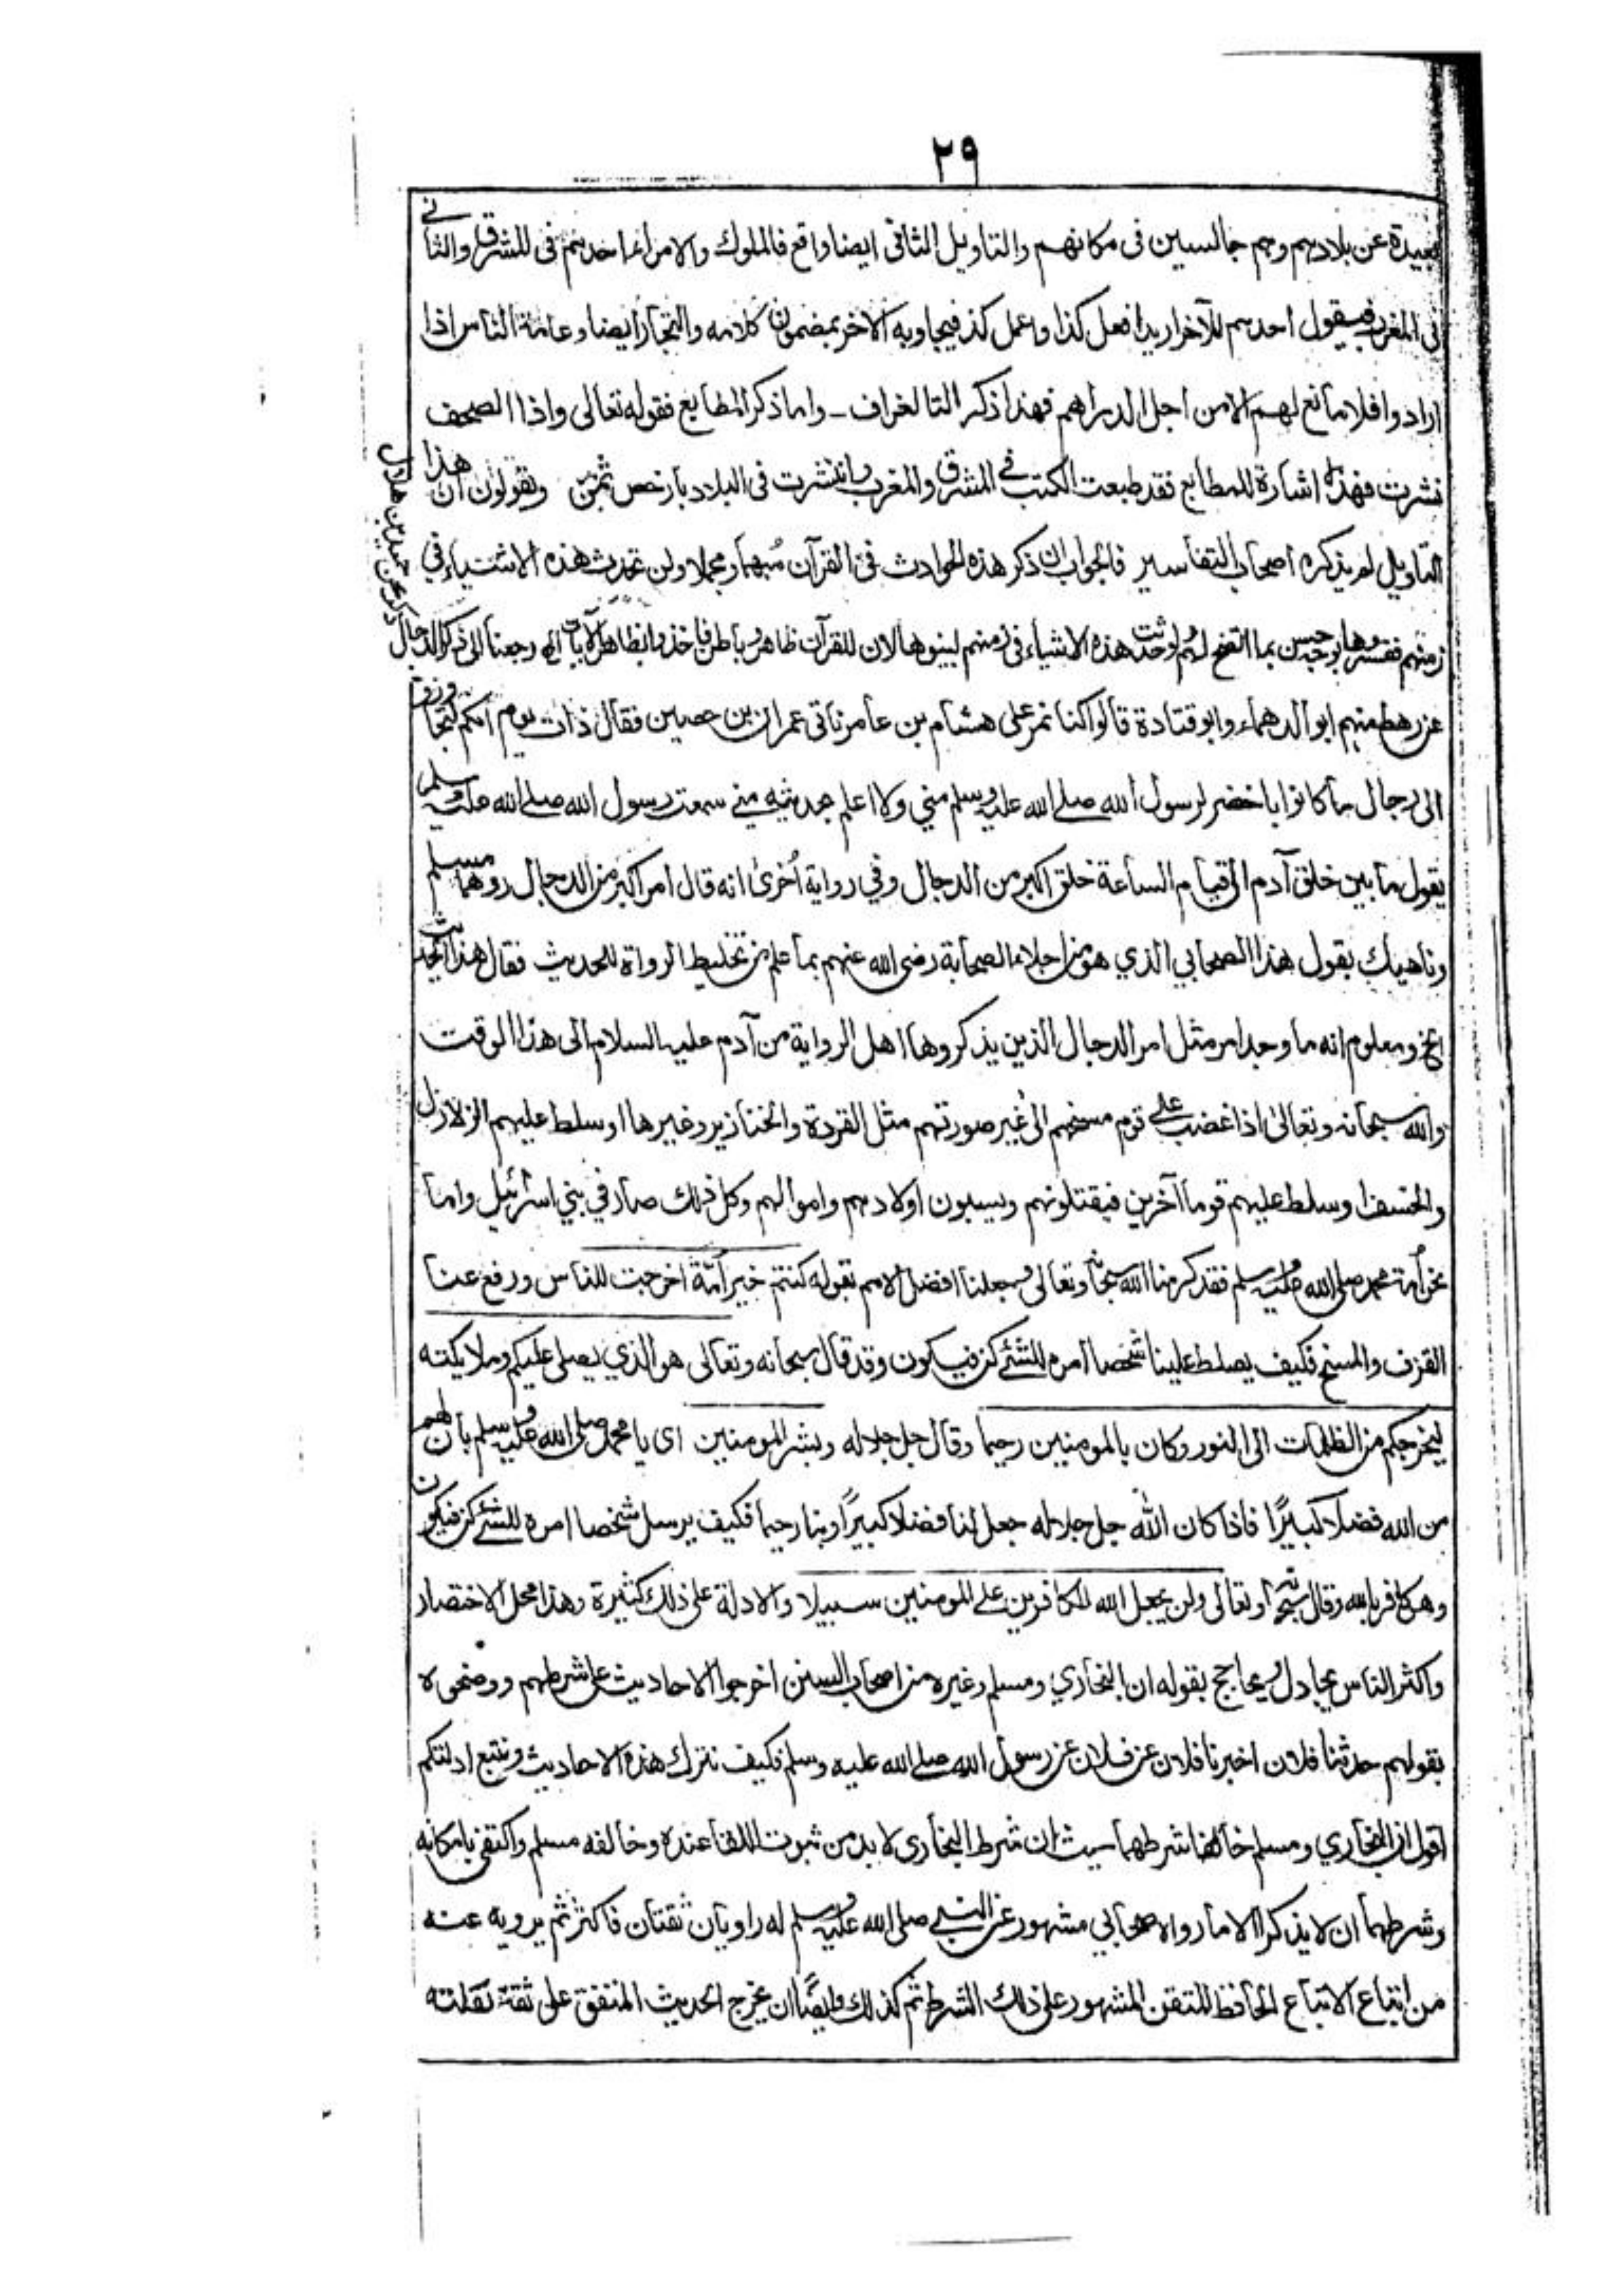 ٢٩
بعيدة عن بلادهم وهم جالسين فى مكانهم والتاويل الثانى ايضا واقع فالملوك والامراء احدهم فى المشرق والثانى
فى المغرب فيقول احدهم للآخر اريد افعل كذا واعمل كذ فيجاوبه الاخر بمضمون كلامه والتجار ايضا وعامة الناس اذا
ارادوا فلا مانع لهم الا من اجل الدراهم فهذا ذكر التالغراف - واما ذكر المطابع فقوله تعالى واذا الصحف
نشرت فهذه اشارة للمطابع فقد طبعت الكتب في المشرق والمغرب وانتشرت فى البلاد بارخص ثمن وتقولون ان هذا
التاويل لم يذكره اصحاب التفاسير فالجواب ان ذكر هذه الحوادث فى القرآن مُبهما ومجملا ولن تحدث هذه الاشياء في
زمنهم ففسروها بوجه حسن بما اتضح لهم ولو حدثت هذه الاشياء فى زمنهم لبينوها لان للقرآن ظاهر وباطن فاخذوا بظاهر الآيات الخ رجعنا الى ذكر الدجال
ذكر عن حميد بن هلال
عن رهط منهم ابو الدهماء وابو قتادة قالوا كنا نمر على هشام بن عامر ناتى عمران بن حصين فقال ذات يوم انكم لتجاوزون
الى رجال ما كانوا باحضر لرسول الله صلے الله عليه وسلم مني ولا اعلم بحديثه مني سمعت رسول الله صلے الله عليه وسلم
يقول ما بين خلق آدم الى قيام الساعة خلق اكبر من الدجال وفي رواية أخرى انه قال امر اكبر من الدجال روهما مسلم
وناهيك بقول هذا الصحابي الذي هو من اجلاء الصحابة رضى الله عنهم بما علم من تخليط الرواة للحديث فقال هذا الحديث
الخ ومعلوم انه ما وجد امر مثل امر الدجال الذين يذكروها اهل الرواية من آدم عليه السلام الى هذا الوقت
والله سبحانه وتعالى اذا غضب على قوم مسخهم الى غير صورتهم مثل القردة والخنازير وغيرها او سلط عليهم الزلازل
والخسف او سلط عليهم قوما آخرين فيقتلونهم ويسبون اولادهم واموالهم وكل ذلك صار في بني اسرائيل واما
نحن أمة محمد صلى الله عليه وسلم فقد كرمنا الله سبحانه وتعالى وجعلنا افضل الامم بقوله كنتم خير أمّة اخرجت للناس ورفع عنا
القزف والمسخ فكيف يصلط علينا شخصا امره للشئ كن فيكون وقد قال سبحانه وتعالى هو الذي يصلى عليكم وملائكته
ليخرجكم من الظلمات الى النور وكان بالمومنين رحيما وقال جل جلاله وبشر المومنين اى يا محمد صلى الله عليه وسلم بان لهم
من الله فضلا كبيرًا فاذا كان الله جل جلاله جعل لنا فضلا كبيرًا وبنا رحيما فكيف يرسل شخصا امره للشئ كن فيكون
وهو كافر بالله وقال سبحانه وتعالى ولن يجعل الله للكافرين على المومنين سبيلا والادلة على ذلك كثيرة وهذا محل الاختصار
واكثر الناس يجادل ويحاجج بقوله ان البخاري ومسلم وغيره من اصحاب السنن اخرجوا الاحاديث على شرطهم ووضحوه
بقولهم حدثنا فلان اخبرنا فلان عن فلان عن رسول الله صلے الله عليه وسلم فكيف نترك هذه الاحاديث ونتبع ادلتكم
اقول ان البخاري ومسلم خالفا شرطهما حيث ان شرط البخارى لا بد من ثبوت اللقا عنده وخالفه مسلم واكتفى بامكانه
وشرطهما ان لا يذكرا الا ما رواه صحابي مشهور عن النبي صلى الله عليه وسلم له راويان ثقتان فاكثر ثم يرويه عنه
من اتباع الاتباع الحافظ المتقن المشهور على ذلك الشرط ثم كذلك وايضًا ان يخرج الحديث المتفق على ثقة نقلته